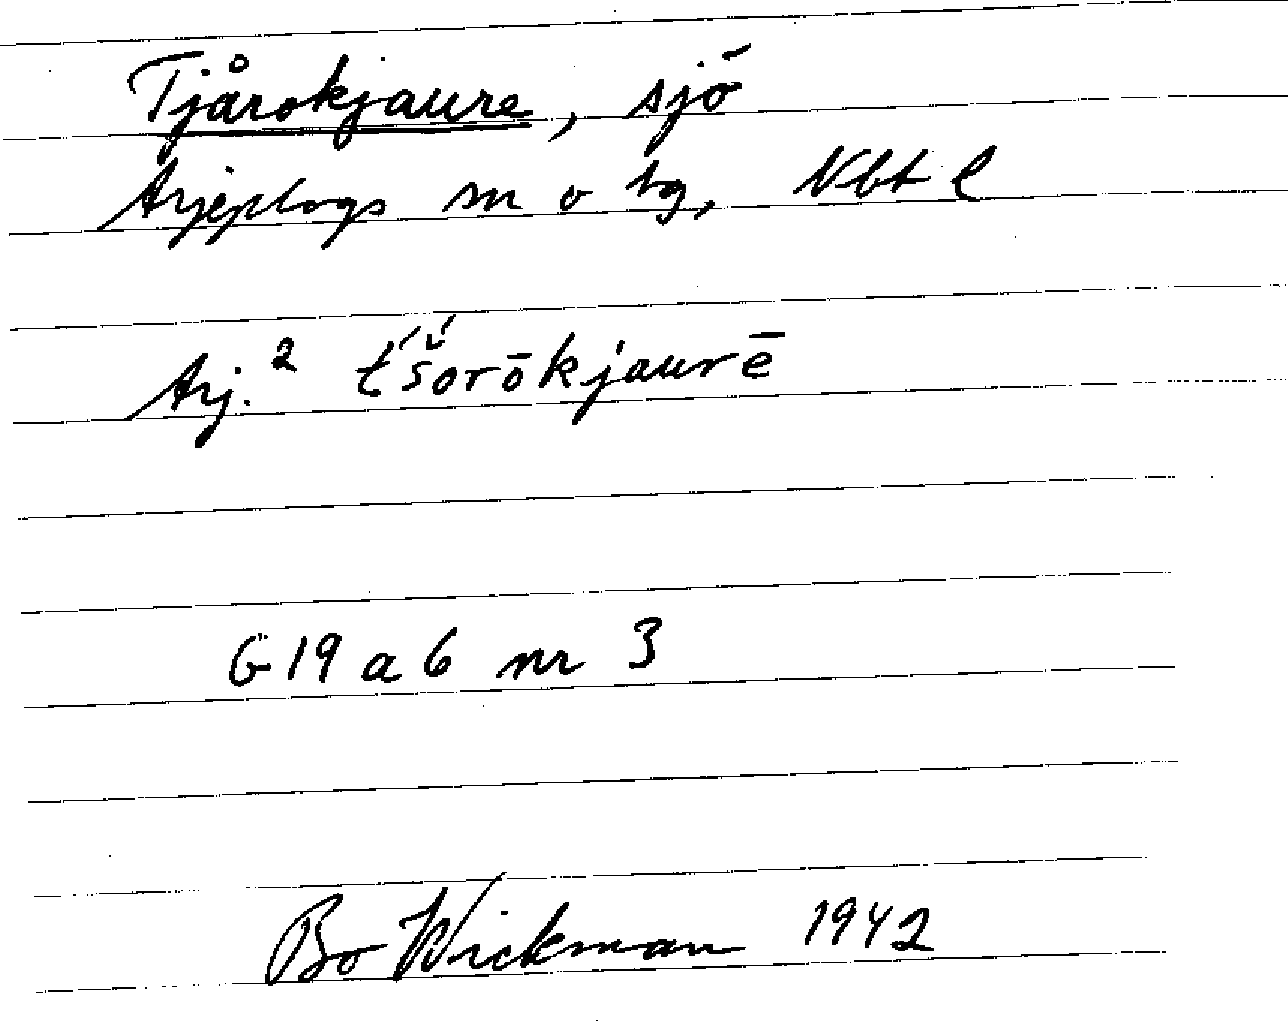 Tjårokjaure, sjö
Arjeplogs sn o tg, Nbt l
Arj.² t́š́orōkjaurē
G 19 a 6 nr 3
Bo Wickman 1942